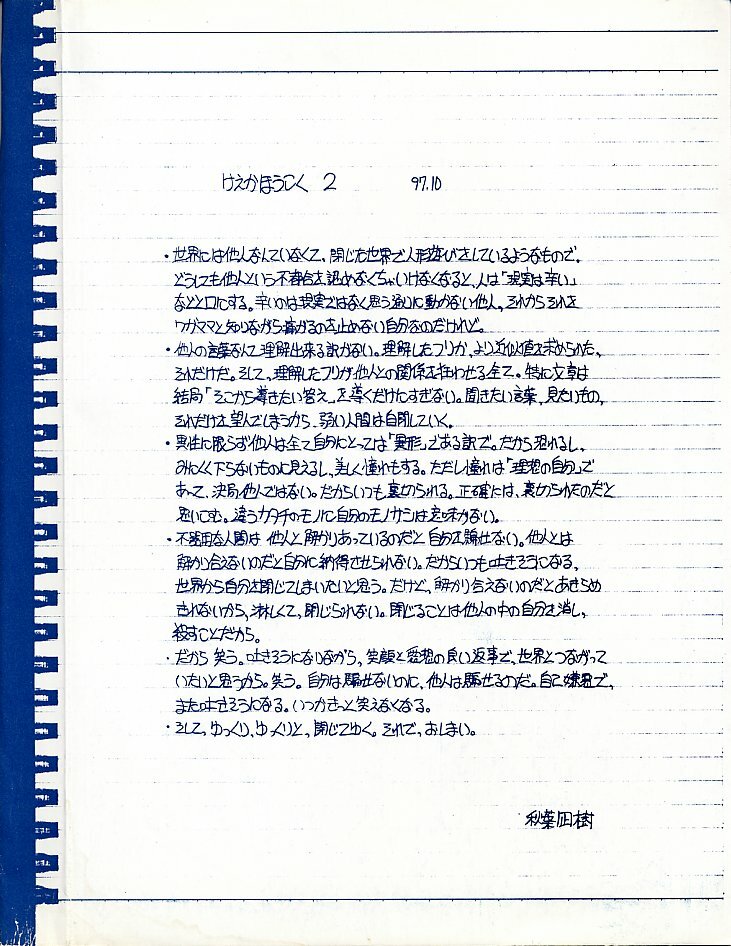 けえかほうこく 2 97.10
・世界には他人なんていなくて、閉じた世界で人形遊びをしているようなもので。
どうしても他人という不都合を認めなくちゃいけなくなると、人は「現実は辛い」
などと口にする。辛いのは現実ではなく思う通りに動かない他人、それからそれを
ワガママと知りながら痛がるのを止めない自分なのだけれど。
・他人の言葉なんて理解出来る訳がない。理解したフリか、より近似値を求められた、
それだけだ。そして、理解したフリが他人との関係を狂わせる全て。特に文章は
結局「そこから導きたい答え」を導くだけにすぎない。聞きたい言葉、見たいもの、
それだけを望んでしまうから、弱い人間は自閉していく。
・異性に限らず他人は全て自分にとっては「異形」である訳で。だから恐れるし、
みにくく下らないものに見えるし、美しく憧れもする。ただし憧れは「理想の自分」で
あって、決局他人ではない。だからいつも裏切られる。正確には、裏切られたのだと
思いこむ。違うカタチのモノに自分のモノサシは意味がない。
・不器用な人間は他人と解かりあっているのだと自分を騙せない。他人とは
解かり合えないのだと自分に納得させられない。だからいつも吐きそうになる。
世界から自分を閉じてしまいたいと思う。だけど、解かり合えないのだとあきらめ
きれないから、淋しくて、閉じられない。閉じることは他人の中の自分を消し、
殺すことだから。
・だから笑う。吐きそうになりながら、笑顔と愛想の良い返事で、世界とつながって
いたいと思うから。笑う。自分は騙せないのに、他人は騙せるのだ。自己嫌悪で、
また吐きそうになる。いつかきっと笑えなくなる。
・そして、ゆっくり、ゆっくりと、閉じてゆく。それで、おしまい。
秋葉凪樹